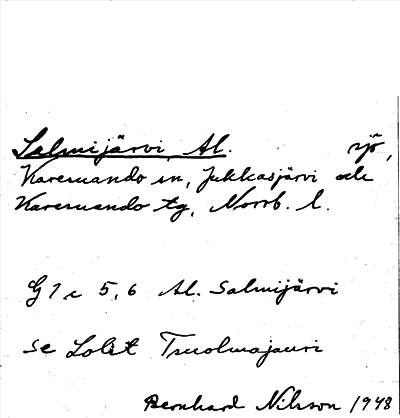 Salmijärvi, Al. sjö,
Karesuando sn, Jukkasjärvi och
Karesuando tg, Norrb. l.
G 1 c 5, 6 Al. Salmijärvi
Se Lolst Tsuolmajauri
Bernhard Nilsson 1948